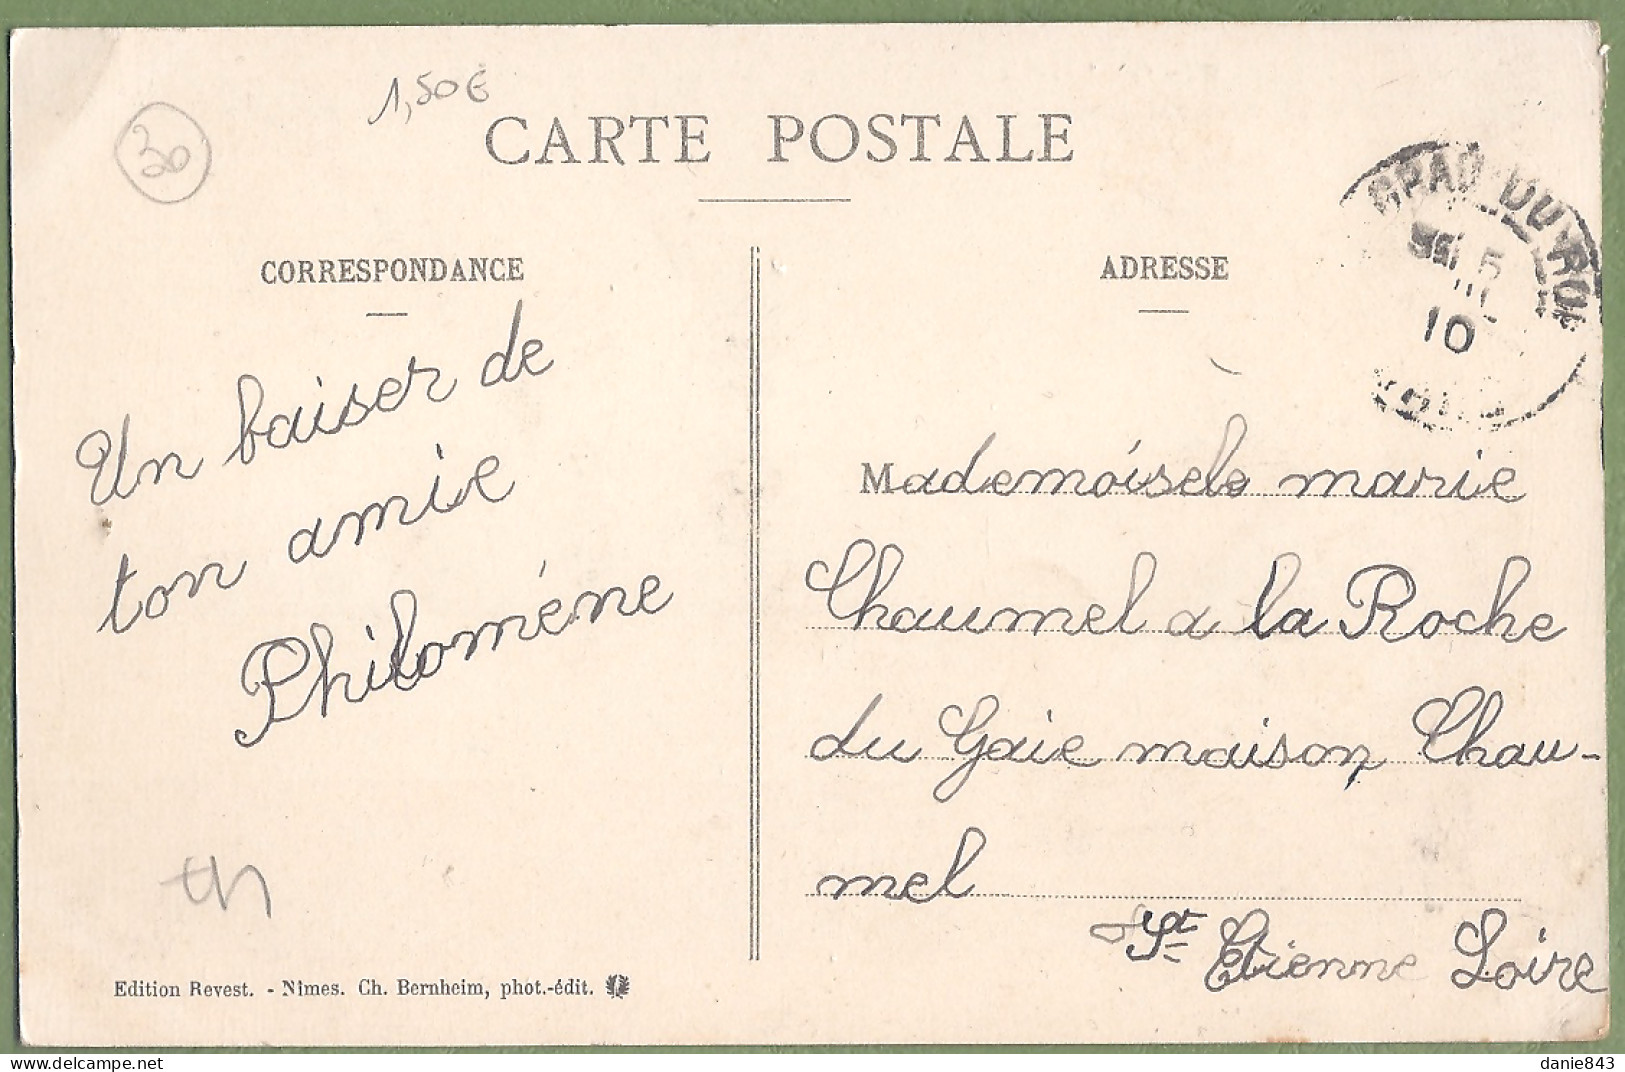 1,50€
30
CARTE POSTALE
GRAU-DU-ROI
5
10
CORRESPONDANCE
Un baiser de
ton amie
Philoméne
th
Edition Revest. - Nîmes. Ch. Bernheim, phot.-édit.
ADRESSE
Mademóisele marie
Chaumel a la Roche
du Gaie maison Chau-
mel
St Etienne Loire
danie843